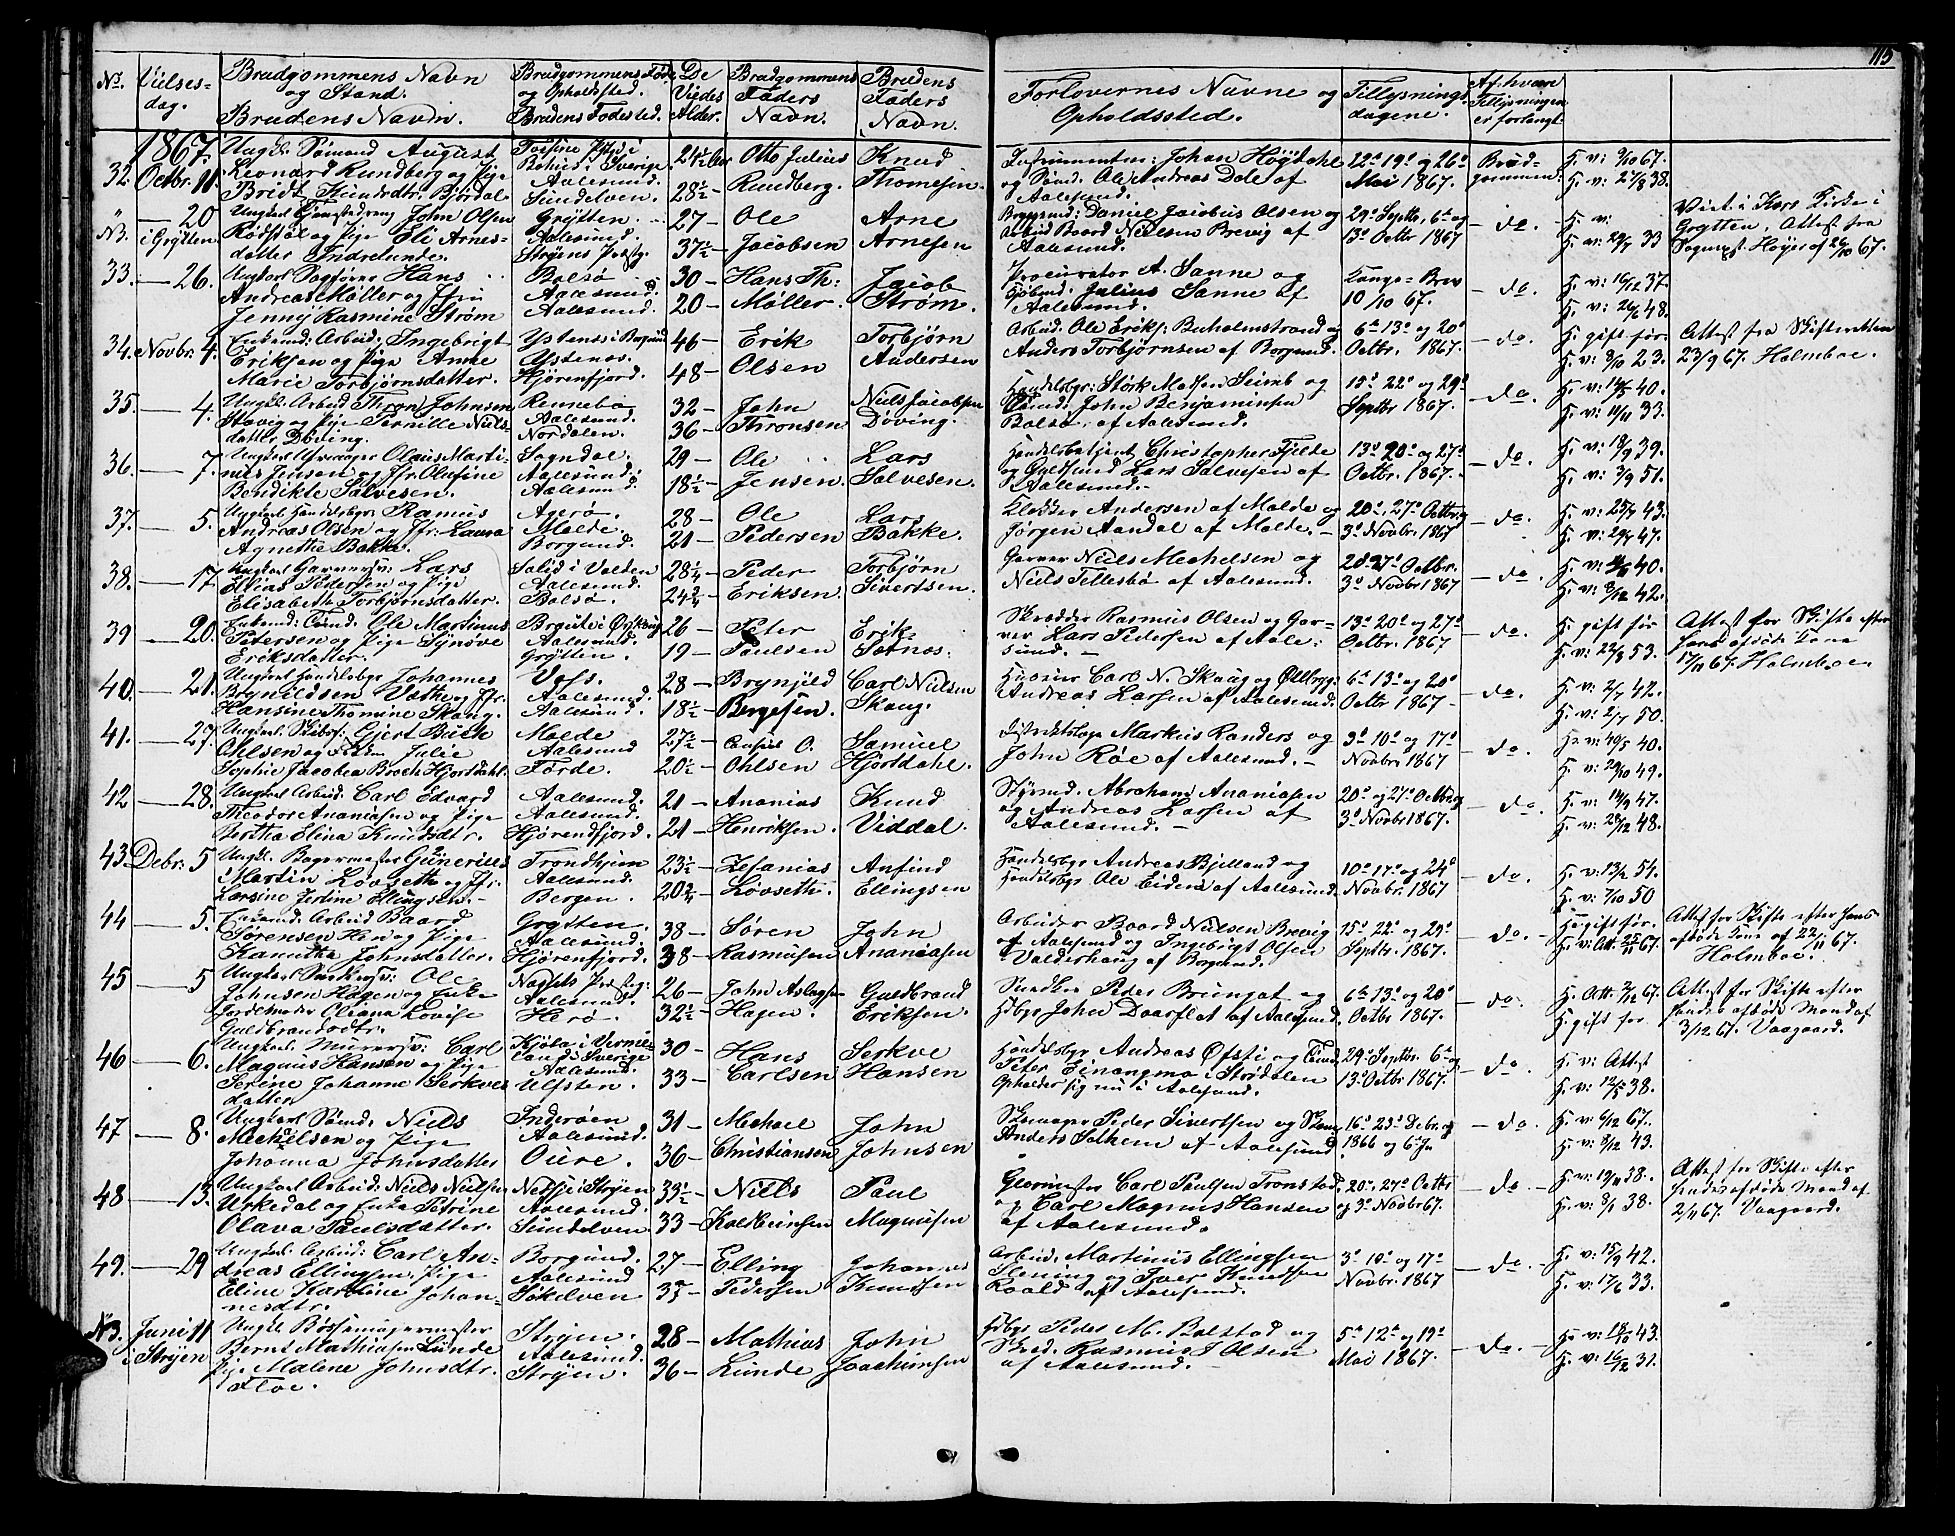 115
No. Vielses-dag. Brudgommens Navn og Stand. Brudens Navn. Brudgommens Føde og Opholdsted. Brudens Fødested. De Viedes Alder. Brudgommens Faders Navn. Brudens Faders Navn. Forlovernes Navne og Opholdssted. Tillysnings-dagene. Af hvem Tillysningen er forlangt
1867.
32. Octbr. 11.
Ungk. Sømand August
Leonard Rundberg og Pige
Bridt Knudsdtr. Bjørdal
Bahus i Sverige
Aalesund.
Sundelven.
24½ Aar
28½
Otto Julius
Rundberg.
Knud
Thomesen.
Johan Høydahl
og Sømd. Ole Andreas Dale af
Aalesund.
12te 19de og 26de
Mai 1867.
Brud-
gommen.
H. v: 9/10 67.
H. v: 27/8 38.
" — 20
N3. i Grytten
John Olsen
Rødstøl og Pige Eli Arnes-
datter Indrelunde.
Grytten.
Aalesund.
27 —
37½
Ole
Jacobsen
Arne
Arnesen
Daniel Jacobus Olsen og
Arbeid Baard Nielsen Brevig af
Aalesund.
29de Septbr. 6te og
13de Octbr 1867
— do.
H. v:
H. v: 29/7 33
Viet i Kors Kirke i
Grytten, Attest fra
Sognepst. Høyer af 26/10 67.
33. — 26.
Hans
Andreas Møller og Jfru
Jenny Rasmine Strøm
Bolsø
Aalesund
Aalesund.
30 —
20 —
Hans Th:
Møller.
Jacob
Strøm.
Procurator A. Sanne og
Julius Sanne af
Aalesund.
Konge-Brev
10/10 67.
— do.
H. v: 16/12 37.
H. v: 26/6 48.
34. Novbr. 4.
Enkemd. Arbeid. Ingebrigt
Eriksen og Pige Anne
Marie Torbjørnsdatter.
Ystenes i Borgund
Ystenes.
Hjørenfjord.
46 —
48 —
Erik
Olsen
Torbjørn
Andersen
Arbeid. Ole Eriks: Buholmstrand og
Anders Torbjørnsen af Borgund.
6te 13de og 20de
Octbr. 1867.
— do.
H. gift før
H. v: 8/10 23.
Attest fra Skifteretten
23/9 67. Holmboe.
35. — 4.
Ungk. Arbeid Thron Johnsen
Stavig og Pige Pernille Niels-
datter Døving.
Rennebo
Aalesund.
Nordalen.
32 —
36 —
John
Thronsen
Niels Jacobsen
Døving.
Handelsbgr: Størk Madsen Seimb og
John Benjaminsen
Bolsø, af Aalesund.
15de 22de og 29de
Septbr 1867.
— do.
H. v: 14/5 40.
H. v: 11/11 33.
36. — 7.
Olaus Marti-
nus Jensen og Jfr. Olufine
Bendikte Salvesen.
Sogndal.
Aalesund.
Aalesund.
29 —
18½ —
Ole
Jensen.
Lars
Salvesen.
Handelsbetjent Christopher Fjelde
og Guldsmed Lars Salvesen af
Aalesund. —
13de 20de og 27de
Octbr. 1867.
— do.
H. v: 18/9 39.
H. v: 3/9 51.
37. — 5.
Ungkarl Handelsbgr. Rasmus
Andreas Olsen og Jfr: Laura
Agnetha Bakke.
Agerø.
Molde.
Borgund.
28 —
21 —
Ole
Pedersen
Lars
Bakke.
Klokker Andersen af Molde og
Jørgen Aandal af Molde. —
20de, 27de Octbr. og
3de Novbr. 1867
— do.
H. v: 25/7 43.
H. v: 29/7 47.
38. — 17
Lars
Elias Pedersen og Pige
Elisabeth Torbjørnsdatter.
i Volden
Aalesund.
Bolsø.
28¼
24¾
Peder
Eriksen
Torbjørn
Sivertsen.
Garver Niels Mechelsen og
Niels Tellesbø af Aalesund.
20de 27de Octbr.
3de Novbr 1867
— do.
H. v: 40.
H. v: 8/12 42.
39 — 20.
Ole Martinus
Petersen og Pige Synøve
Eriksdatter.
Aalesund.
Grytten.
26 —
19 —
Peter
Paulsen
Erik
Sotnes.
Skrædder Rasmus Olsen og Gar-
ver Lars Pedersen af Aale-
sund. —
13de 20de og 27de
Octbr. 1867
— do.
H. gift før
H. v: 22/8 53.
Attest for Skifte efter
hans afdøde Kone
17/11 67. Holmboe.
40. — 21.
Ungkarl Handelsbgr Johannes
Brynildsen Vatke og Jfr.
Hansine Thomine Skaug.
Vofs.
Aalesund.
Aalesund.
28 —
18½ —
Brynjild
Bergesen.
Carl Nielsen
Skaug.
Carl N. Skaug og Ølbryg:
Andreas Larsen af Aalesund.
6te 13de og 20de
Octbr 1867
do.
H. v: 2/7 42.
H. v: 2/7 50.
41. — 27.
Gjert Bush
Ohlsen og Frkn Julie
Sophie Jacobea Broch Hjortdahl.
Molde
Aalesund
Førde.
27½
20½ —
O.
Ohlsen
Samuel
Hjortdahl.
Distriktslæge Markus Randers og
John Røe af Aalesund. —
3de 10de og 17de
Novbr. 1867
— do.
H. v: 40.
H. v: 29/10 49.
42 — 28.
Ungkarl Arbeid: Carl Edvard
Theodor Ananiassen og Pige
Bertha Elina Knudsdtr.
Aalesund.
Aalesund.
Hjørendfjord.
21 —
21 —
Ananias
Henriksen.
Knud
Viddal.
Styrmd. Abraham Ananiasen
og Andreas Larsen af
Aalesund. —
20de og 27de Octbr. og
3de Novbr 1867.
— do.
H. v: 14/9 47.
H. v: 28/12 48.
43. Debr. 5
Ungk. Bagermester Gunerius
Martin Løvseth og Jfr.
Larsine Jertine Ellingsen. —
Trondhjem
Aalesund.
Bergen.
23½ —
20¾
Zefanias
Løvseth.
Anfind
Ellingsen
Handelsbgr Andreas Bjelland og
Handelsbgr Ole Eidem af Aalesund.
10de 17de og 24de
Novbr. 1867
— do.
H. v: 13/2 51.
H. v: 7/10 50
44 — 5.
Enkemd. Arbeid Baard
Sørensen Hen og Pige
Kanutha Johnsdatter.
Grytten.
Aalesund.
Hjørenfjord.
38 —
38 —
Søren
Rasmusen
John
Ananiasen
Arbeider Baard Nielsen Brevig
af Aalesund og Ingebrigt Olsen
Valderhaug af Borgund.
15de 22de og 29de
Septbr. 1867.
— do. —
H. gift før.
H. v: Att. 22/11 67.
Attest for Skifte efter hans
afdøde Kone af 22/11 67.
Holmboe.
45 — 5
Ole
Johnsen Hagen og Enke
Jordemoder Oleana Lovise
Guldbrandsdtr.
Præstegj:
Aalesund.
Herø.
26 —
32½ —
John Aslagsen
Hagen.
Guldbrand
Eriksen.
Peder Brungot og
Hdbgr John Daarflot af Aalesund.
6te 13de og 20de
Octbr. 1867.
do.
H. Att. 3/12 67.
H. gift før
Attest for Skifte efter
hendes afdøde Mand af
3/12 67. Vaagaard.
46 — 6.
Ungkarl. Murersv: Carl
Magnus Hansen og Pige
Serine Johanne Serkves
datter
i Verme-
land i Sverige
Aalesund.
Ulfsten.
30 —
33 —
Hans
Carlsen
Serkve
Hansen
Handelsbgr Andreas Øfsti og Tømd.
Peter Einangmo i Strødalen
Opholder sig nu i Aalesund.
29de Septbr. 6te og
13de Octbr 1867.
— do.
H. v: Attest
H. v: 12/5 38.
47 — 8.
Ungkarl Sømd. Niels
Mechelsen og Pige
Johanna Johnsdatter
Inderøen
Aalesund.
Oure.
31 —
36 —
Mechael
Christiansen
John
Johnsen
Skomager Peder Sivertsen og
Anders Solhem af Aalesund
16de 23de Debr. og
1866 og 6te Ja
— do.
H. v: 6/12 67.
H. v: 8/12 43.
48 — 13.
Ungkarl Arbeid: Niels Nielsen
Urkedal og Enke Petrine
Olava Paulsdatter.
i Stryen
Aalesund.
Sundelven
33½
33 —
Niels
Paul
Magnusen
Glarmester Carl Paulsen Tronstad
og Carl Magnus Hansen
af Aalesund.
20de, 27de Octbr
og 3de Novbr 67.
— do —
H. v: 19/11 38.
H. v: 8/1 38.
Attest for Skifte efter
hendes afdøde Mand af
2/11 67. Vaagaard.
49. — 29
Ungkarl. Arbeid: Carl An-
dreas Ellingsen, Pige
Eline Karoline Johan-
nesdtr.
Borgund.
Aalesund
Søkelven
27 —
Elling
Pedersen
Johannes
Knudsen
Arbeid. Martinus Ellingsen
Slening og Iver Knudsen
Roald af Aalesund.
3de 10de og 17de
Novbr. 1867
— do.
H. v: 15/9 42.
H. v: 17/6 33.
N3. Juni 11
i Stryen
Ungk Bøssemagermester
Bernt Mathiasen Lunde
Pig. Malene Johnsdtr.
Floe.
Stryen.
Aalesund.
Stryen.
28 —
36 —
Mathias
Lunde
John
Joachimsen
Hdbgr Peder M. Bolstad og
Rasmus T Olsen
af Aalesund. —
5te 12te og 19de
Mai 1867.
— do. —
H. v: 18/5 43.
H. v: 16/12 31.